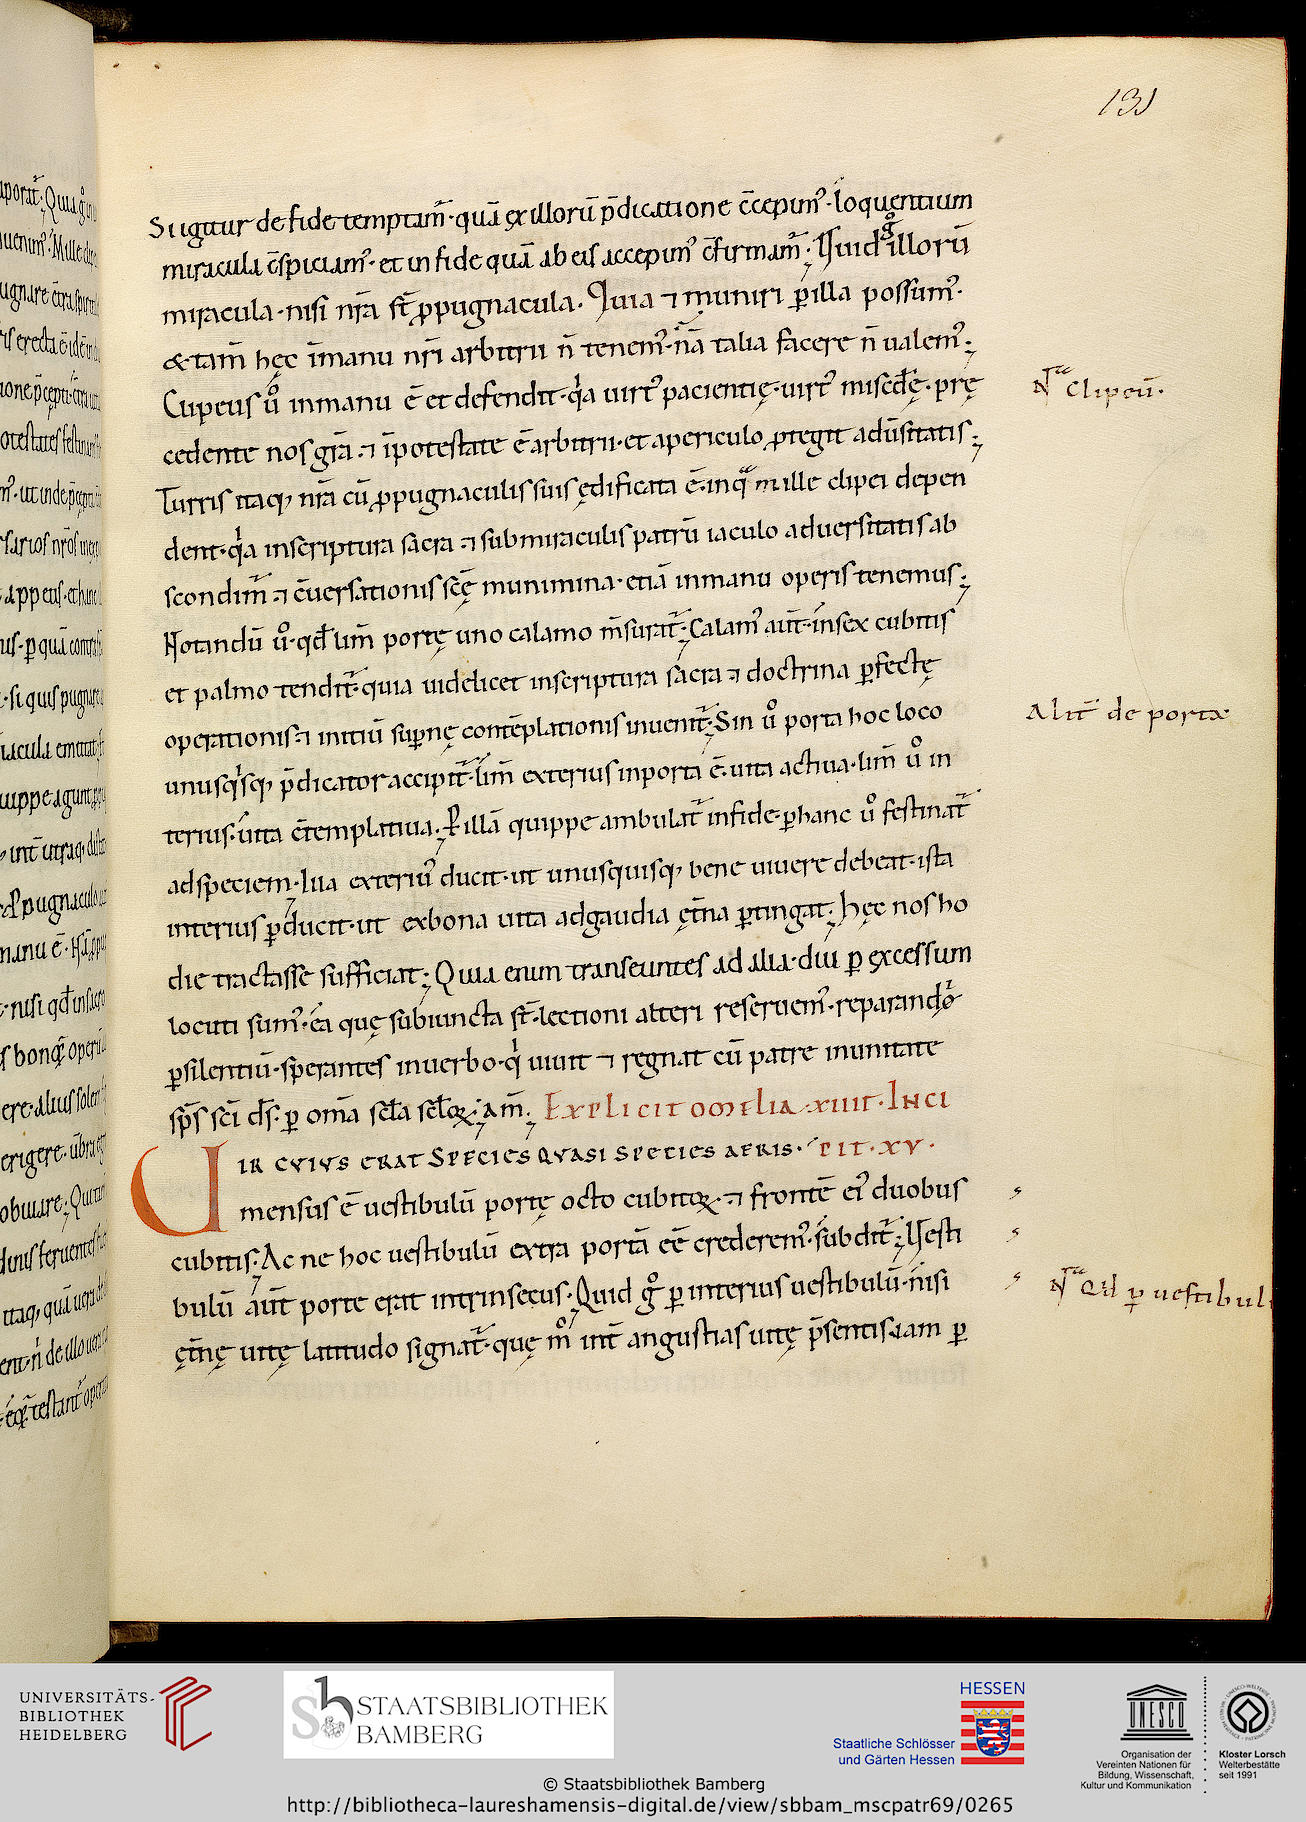 131
Si igitur de fide temptam̄ · quā ex illorū p̄dicatione c̄cepim᾽ · loquentium
miracula c̄spiciam᾽ · et in fide quā ab eis accepim᾽ c̄firmam̄ · Quid g̊ illorū
miracula · nisi nr̄a st̄ ꝓpugnacula · Quia ⁊ muniri ꝑ illa possum᾽ ·
& tam̄ hęc īmanu nr̄i arbitrii n̄ tenem᾽ · nā talia facere n̄ ualem᾽ ;
Clipeus ů inmanu ē et defendit · qͥa uirt᾽ pacientię · uirt᾽ mise᷒dię · prę
cedente nos gr̄a · ⁊ īpotestate ē arbitrii · et apericulo ꝓtegit aduersitatis ;
Turris itaq; nr̄a cū ꝓpugnaculis suis ędificata ē · inqͣ mille clipei depen
dent · qͥa inscriptura sacra ⁊ submiraculis patrū iaculo aduersitatis ab
scondim᾽ ⁊ c̄uersationis scę̄ munimina · etiā inmanu operis tenemus ;
Notandū ů · qd̄ lim̄ portę uno calamo m̄surat᾽ ; Calam᾽ aūt · insex cubitis
et palmo tendit᾽ · quia uidelicet inscriptura sacra ⁊ doctrina ꝑfectę
operationis · ⁊ initiū suꝑnę contēplationis inuenit᾽ ; Sin ů porta hoc loco
unusqͥsq; p̄dicator accipit᾽ · lim̄ exterius inporta ē · uita actiua · lim̄ ů in
terius · uita c̄templatiua · Ꝑ illā quippe ambulat᾽ infide · ꝑ hanc ů festinat᾽
adspeciem · Illa exteri᾽ ducit · ut unusquisq; bene uiuere debeat · ista
interius ꝑducit · ut exbona uita adgaudia ęt̄na ꝑtingat ; hęc nos ho
die tractasse sufficiat ; Quia enim transeuntes ad alia · diu ꝑ excessum
locuti sum᾽ · ea quę subiuncta st̄ · lectioni alteri reseruem᾽ · reparandi
ꝑ silentiū · sperantes inuerbo · qͥ uiuit ⁊ regnat cū patre inunitate
sp̄s sc̄i d̄s · ꝑ om̄a sc̄la sc̄loꝝ · am̄ ; Explicit omelia · xiiii · Inci
Uir cuius erat species quasi species aeris · pit · xv ·
mensus ē uestibulū portę octo cubitoꝝ · ⁊ frontē ei᾽ duobus
cubitis · Ac ne hoc uestibulū extra portā eē crederem᾽ · subdit᾽ ; Uesti
bulū aūt porte erat intrinsecus · Quid g̊ ꝑ interius uestibulū · nisi
ęt̄nę uitę latitudo signat᾽ · quę m̊ int̄ angustias uitę p̄sentis iam ꝑ
Nͭͣ clipeū ·
Alit̄ de porta
Nͭͣ Qͥd ꝑ uestibul
UNIVERSITÄTS-
BIBLIOTHEK
HEIDELBERG
STAATSBIBLIOTHEK
BAMBERG
HESSEN
Staatliche Schlösser
und Gärten Hessen
UNESCO
Organisation der
Vereinten Nationen für
Bildung, Wissenschaft,
Kultur und Kommunikation
Kloster Lorsch
Welterbestätte
seit 1991
© Staatsbibliothek Bamberg
http://bibliotheca-laureshamensis-digital.de/view/sbbam_mscpatr69/0265